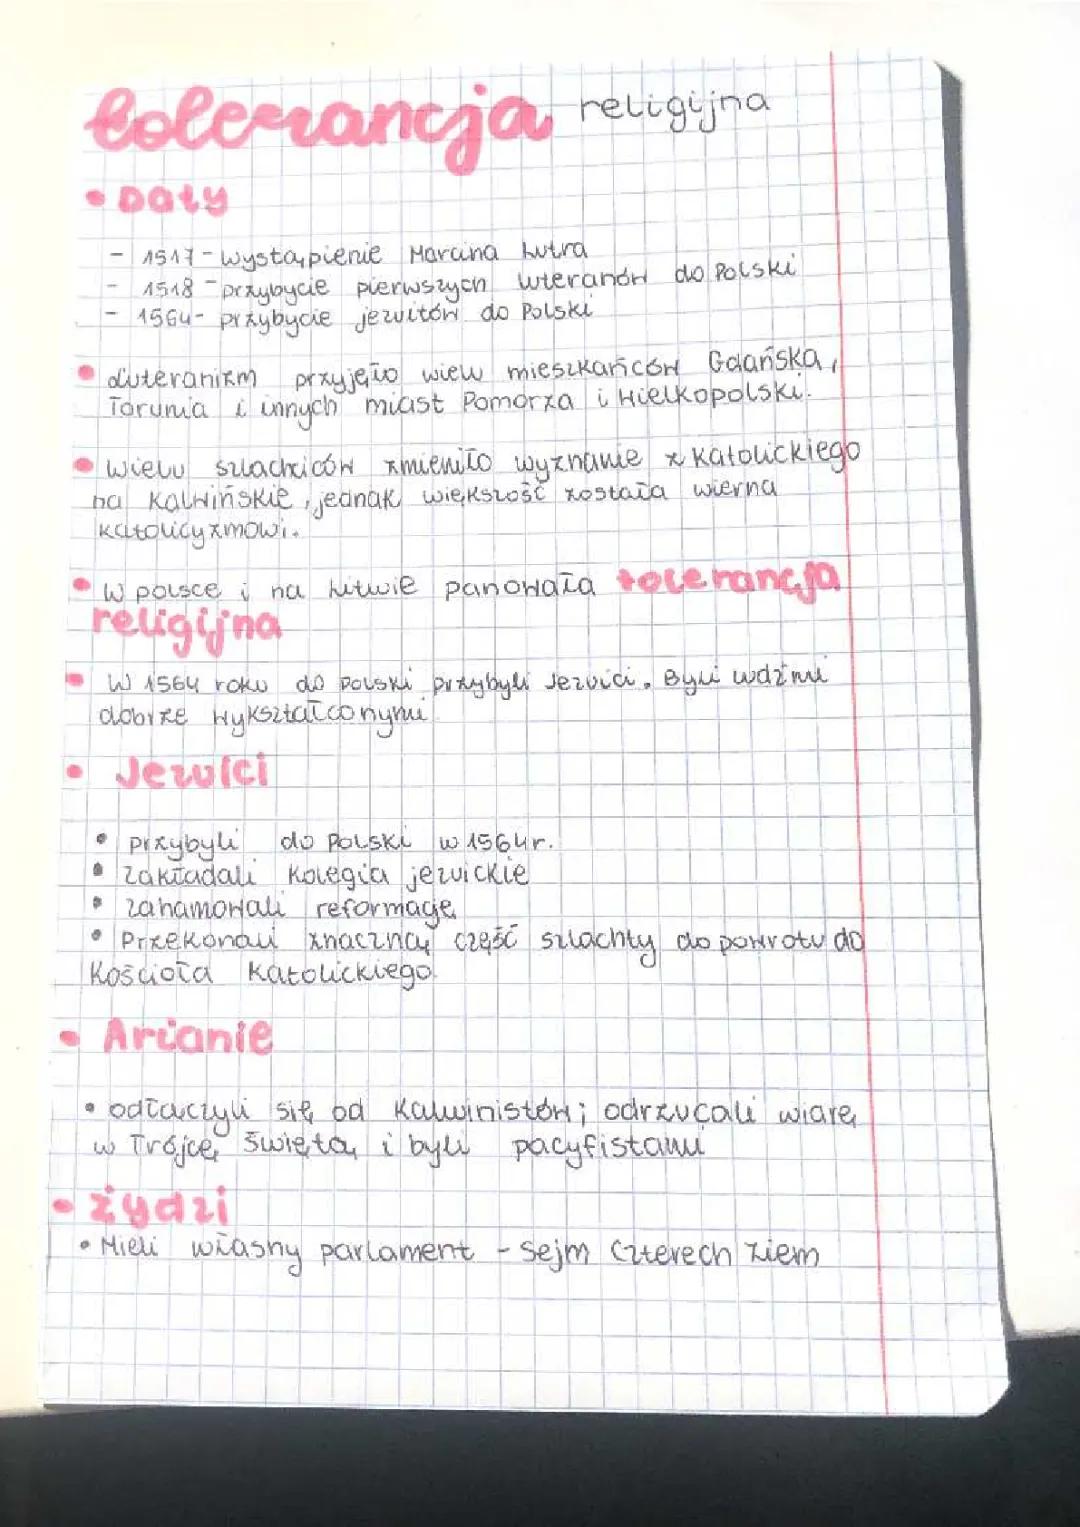 tolerancja religijna
• Daty
- 1517 - wystąpienie Marcina Lutra
- 1518 - przybycie pierwszych luteranów do Polski
- 1564 - przybycie jezuitów do Polski
• Luteranizm przyjęło wielu mieszkańców Gdańska,
Torunia i innych miast Pomorza i Wielkopolski.
• Wielu szlachciców zmieniło wyznanie z katolickiego
na kalwińskie, jednak większość została wierna
katolicyzmowi.
• W Polsce i na Litwie panowała tolerancja
religijna
• W 1564 roku do Polski przybyli Jezuici. Byli ludźmi
dobrze wykształconymi
• Jezuici
• przybyli do Polski w 1564r.
• Zakładali Kolegia jezuickie
• zahamowali reformację
• Przekonali znaczną część szlachty do powrotu do
Kościoła Katolickiego.
• Arianie
• odłączyli się od Kalwinistów; odrzucali wiarę
w Trójcę Świętą i byli pacyfistami
• żydzi
• Mieli własny parlament - Sejm Czterech Ziem